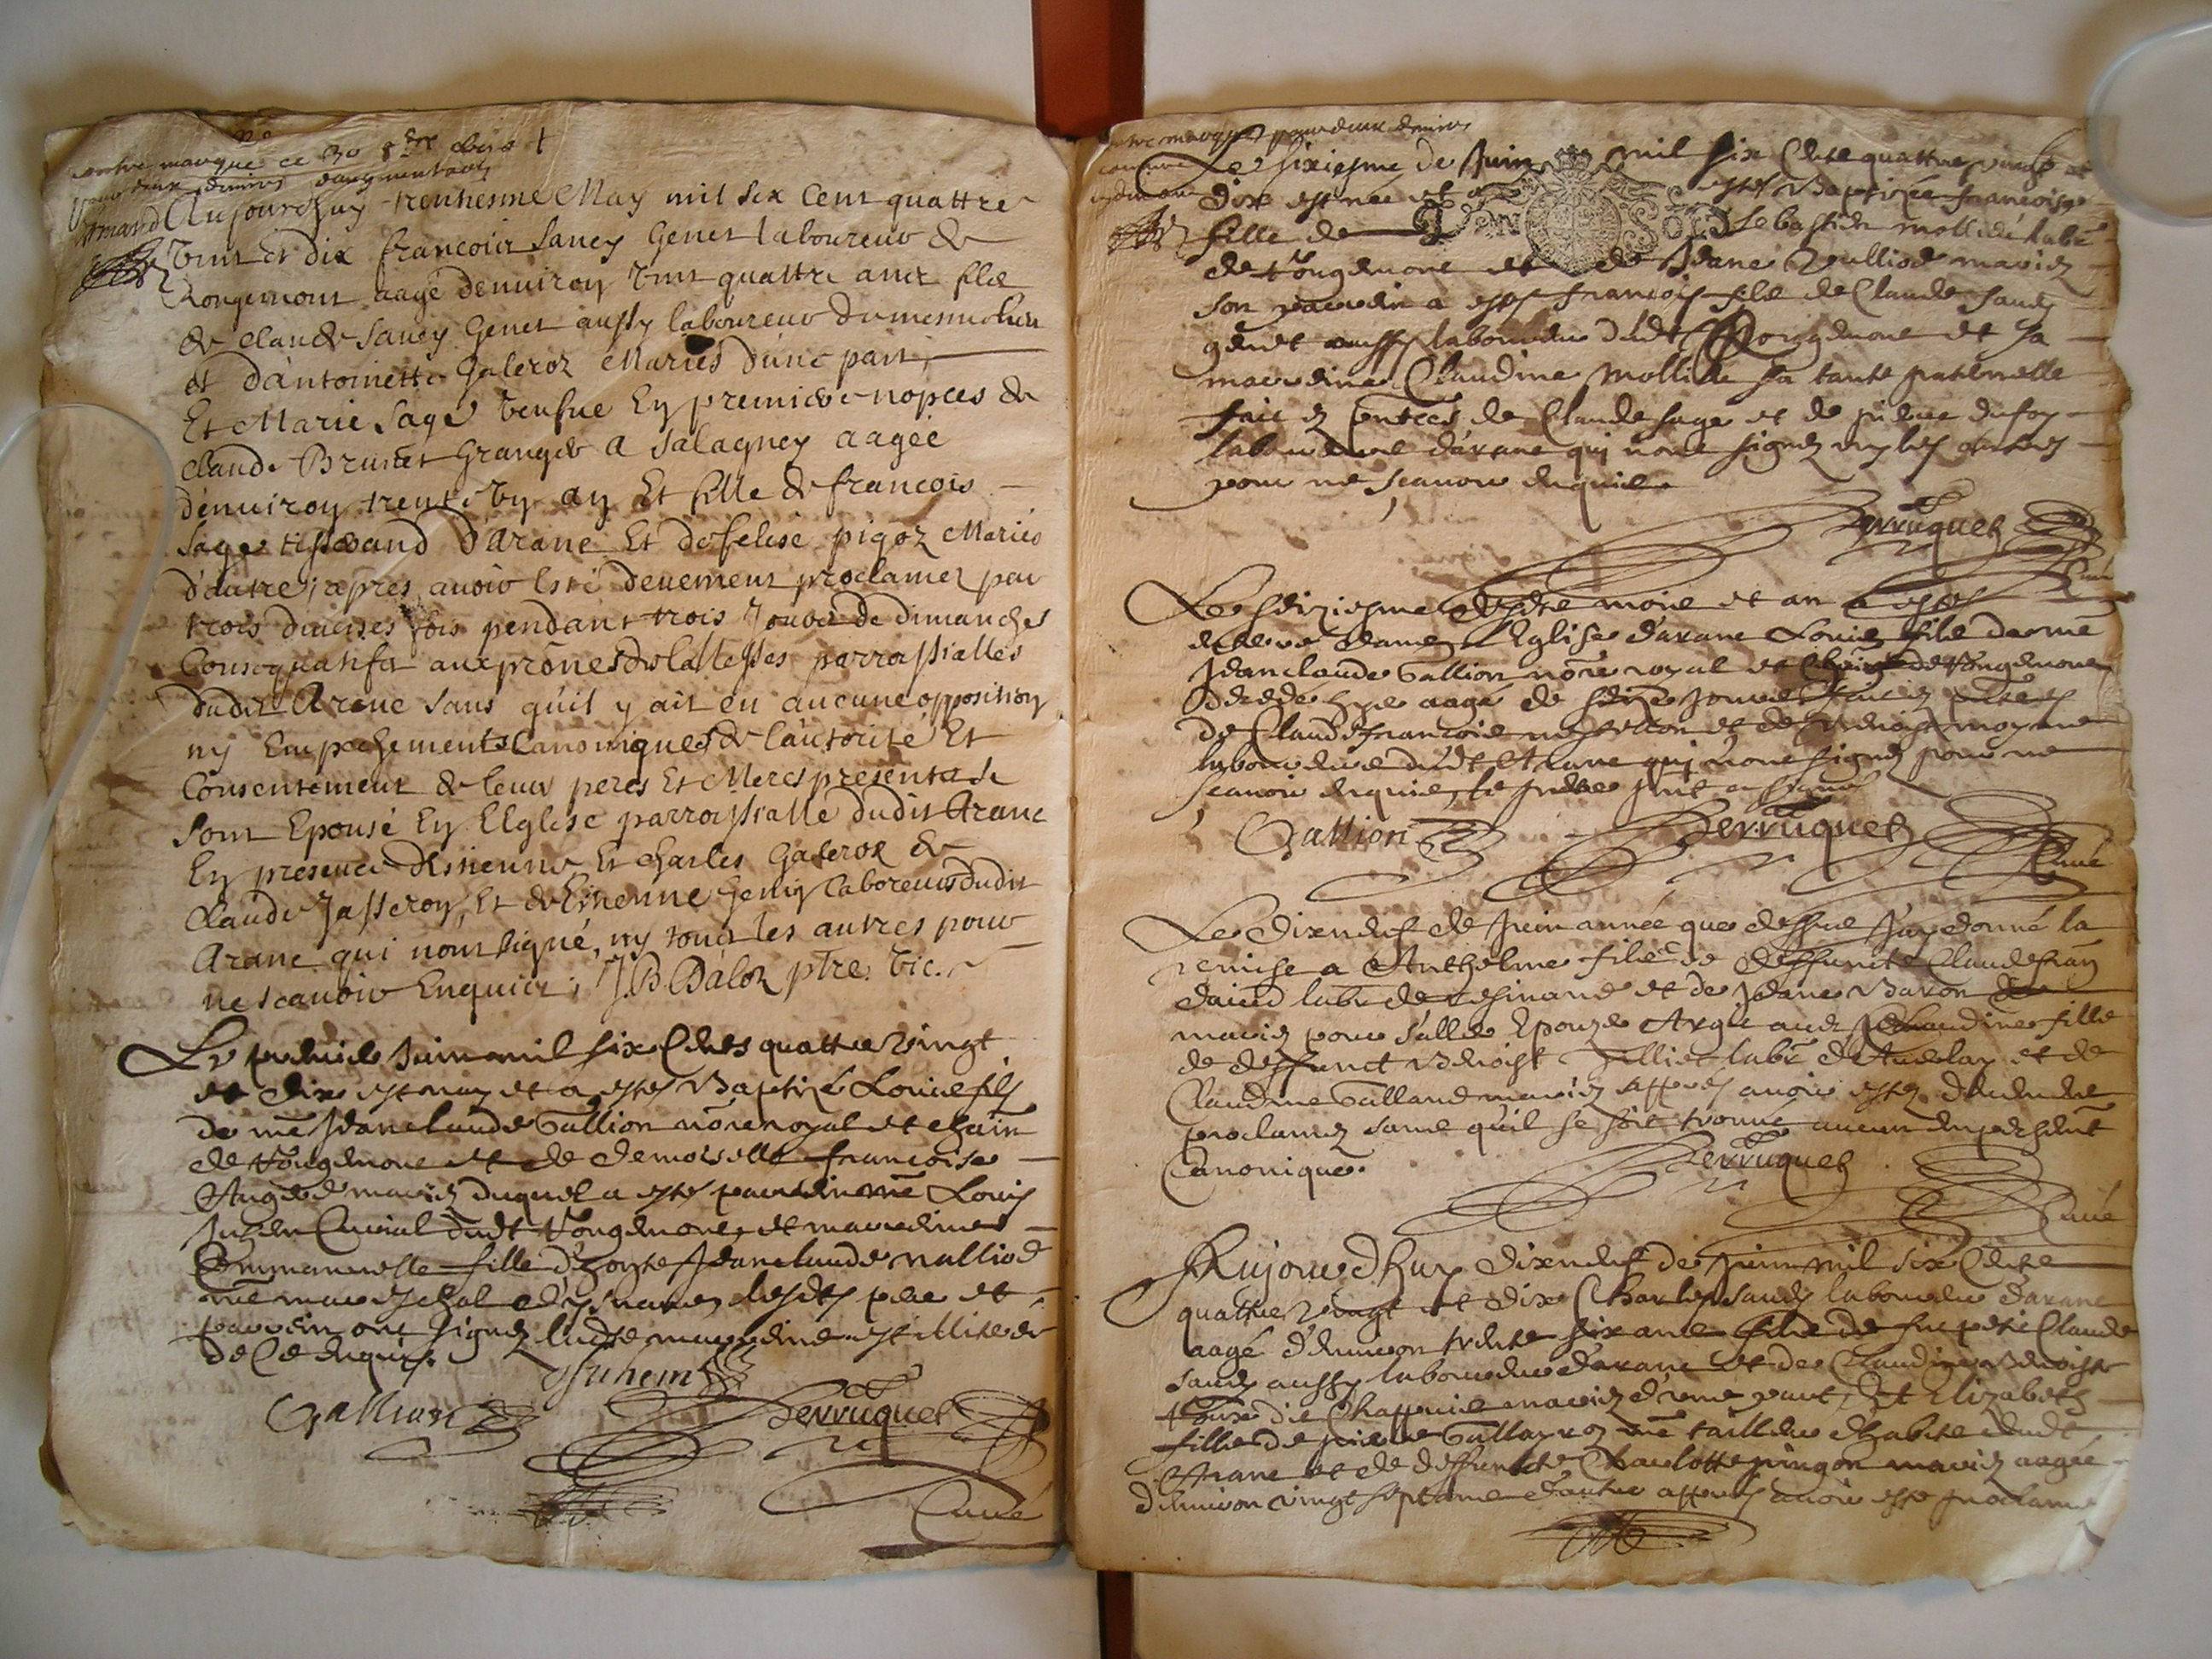 contre marqué ce 30
pour deux deniers daugmentaōn
Aujourdhuy trentiesme May mil six Cent quattre
Vint Et dix francois Sancy Genet laboureur de
Rongemont aagé denuiron Vint quattre ans filz
de Claude Sancy Genet aussy laboureur du mesme lieu
et dantoinette Galeroz Mariés dune part,
Et Marie Sage Veufue En premiere nopces de
Claude Brunet Granger a Salagney aagée
denuiron trente Vn an Et fille de francois
Sage tisserand d'Arane Et de felise pigoz Mariés
d'autre; apres auoir Esté deuement proclamez par
trois diuerses fois pendant trois Jours de dimanches
Consequatifs aux prônes de la Messes parroissialles
dudit Arane sans quil y ait eu aucune opposition
ny Empechements Canoniques de l'autorité Et
Consentement de leurs peres Et Meres presents se
sont Epousé En L'Eglise parroissialle dudit Arane
En presence d'Estienne Et Charles Galeroz de
Claude Jasseron, Et de Etienne Genin laboreurs dudit
Arane qui n'ont signé, ny tous les autres pour
ne scauoir Enquis; J.B Daloz ptre. vic.
Le premier Juin mil six Cents quattre Vingt
et dix est nay et a esté Baptizé Louis fils
de me Jean claude Gallion nore royal et chain
de Rongemont et de demoiselle francoise
mariez duquel a esté parrain me Louis
Curial dudt Rongemont, et marreine
Emmanuelle fille d'honste Jean claude Nalliod
me mareschal lesdts pere et
parrein ont signez ladte marreine est illiterée
de Ce enquise
Juhem
Gallion Perruquet
Curé
contre marqué pour deux deniers
Le sixiesme de Juin mil six Cents quattre vingts et
dix est née et a esté Baptizée francoise
fille de Sebastien Mollie labr
de Rongemont et de Jeane Nalliod mariez
son parrein a esté francois fils de Claude Sancy
genet aussy laboureur dudt Rongemont et sa
marreine Claudine Mollie sa tante paternelle
faict en pntces de Claude Sage et de pierre dufoy
laboureurs d'arane qui n'ont signez ny les autres
pour ne scauoir enquis
Perruquet
Curé
Le seiziesme desdts mois et an a esté
enterré dans l'Eglise d'arane Louis fils de me
Jean claude Gallion nore royal et Chain de Rongemont
decede hyer aagé de seize jours faict en pntces
de Claude francois et de Benoist moyne
laboureurs dudt Arane qui n'ont signez pour ne
scauoir enquis, le pere pnt a signé
Gallion Perruquet
Curé
Le dixneuf de Juin année que dessus J'ay donné la
remise a Anthelme fils de deffunct Claude fran
labr de et de Jeane Baron
mariez pour s'aller Epouzer auec Claudine fille
de deffunct Benoist labr et de
Claudine Galland mariez apprés auoir estez deuement
proclamez sans quil se soit trouué aucun empechemt
Canonique.
Perruquet
Curé
Aujourdhuy dixneuf de Juin mil six Cents
quattre vingt et dix Charles Sancy laboureur d'arane
aagé d'enuiron trente six ans fils de fut petit Claude
Sancy aussy laboureur d'arane et de Claudine Benoiste
mariez d'une part, Et Elizabeth
fille de pierre Gallayroz me tailleur d'habits dudt
Arane et de deffuncte Charlotte pingon mariez aagée
d'enuiron vingt sept ans d'autre apprés auoir esté proclamé